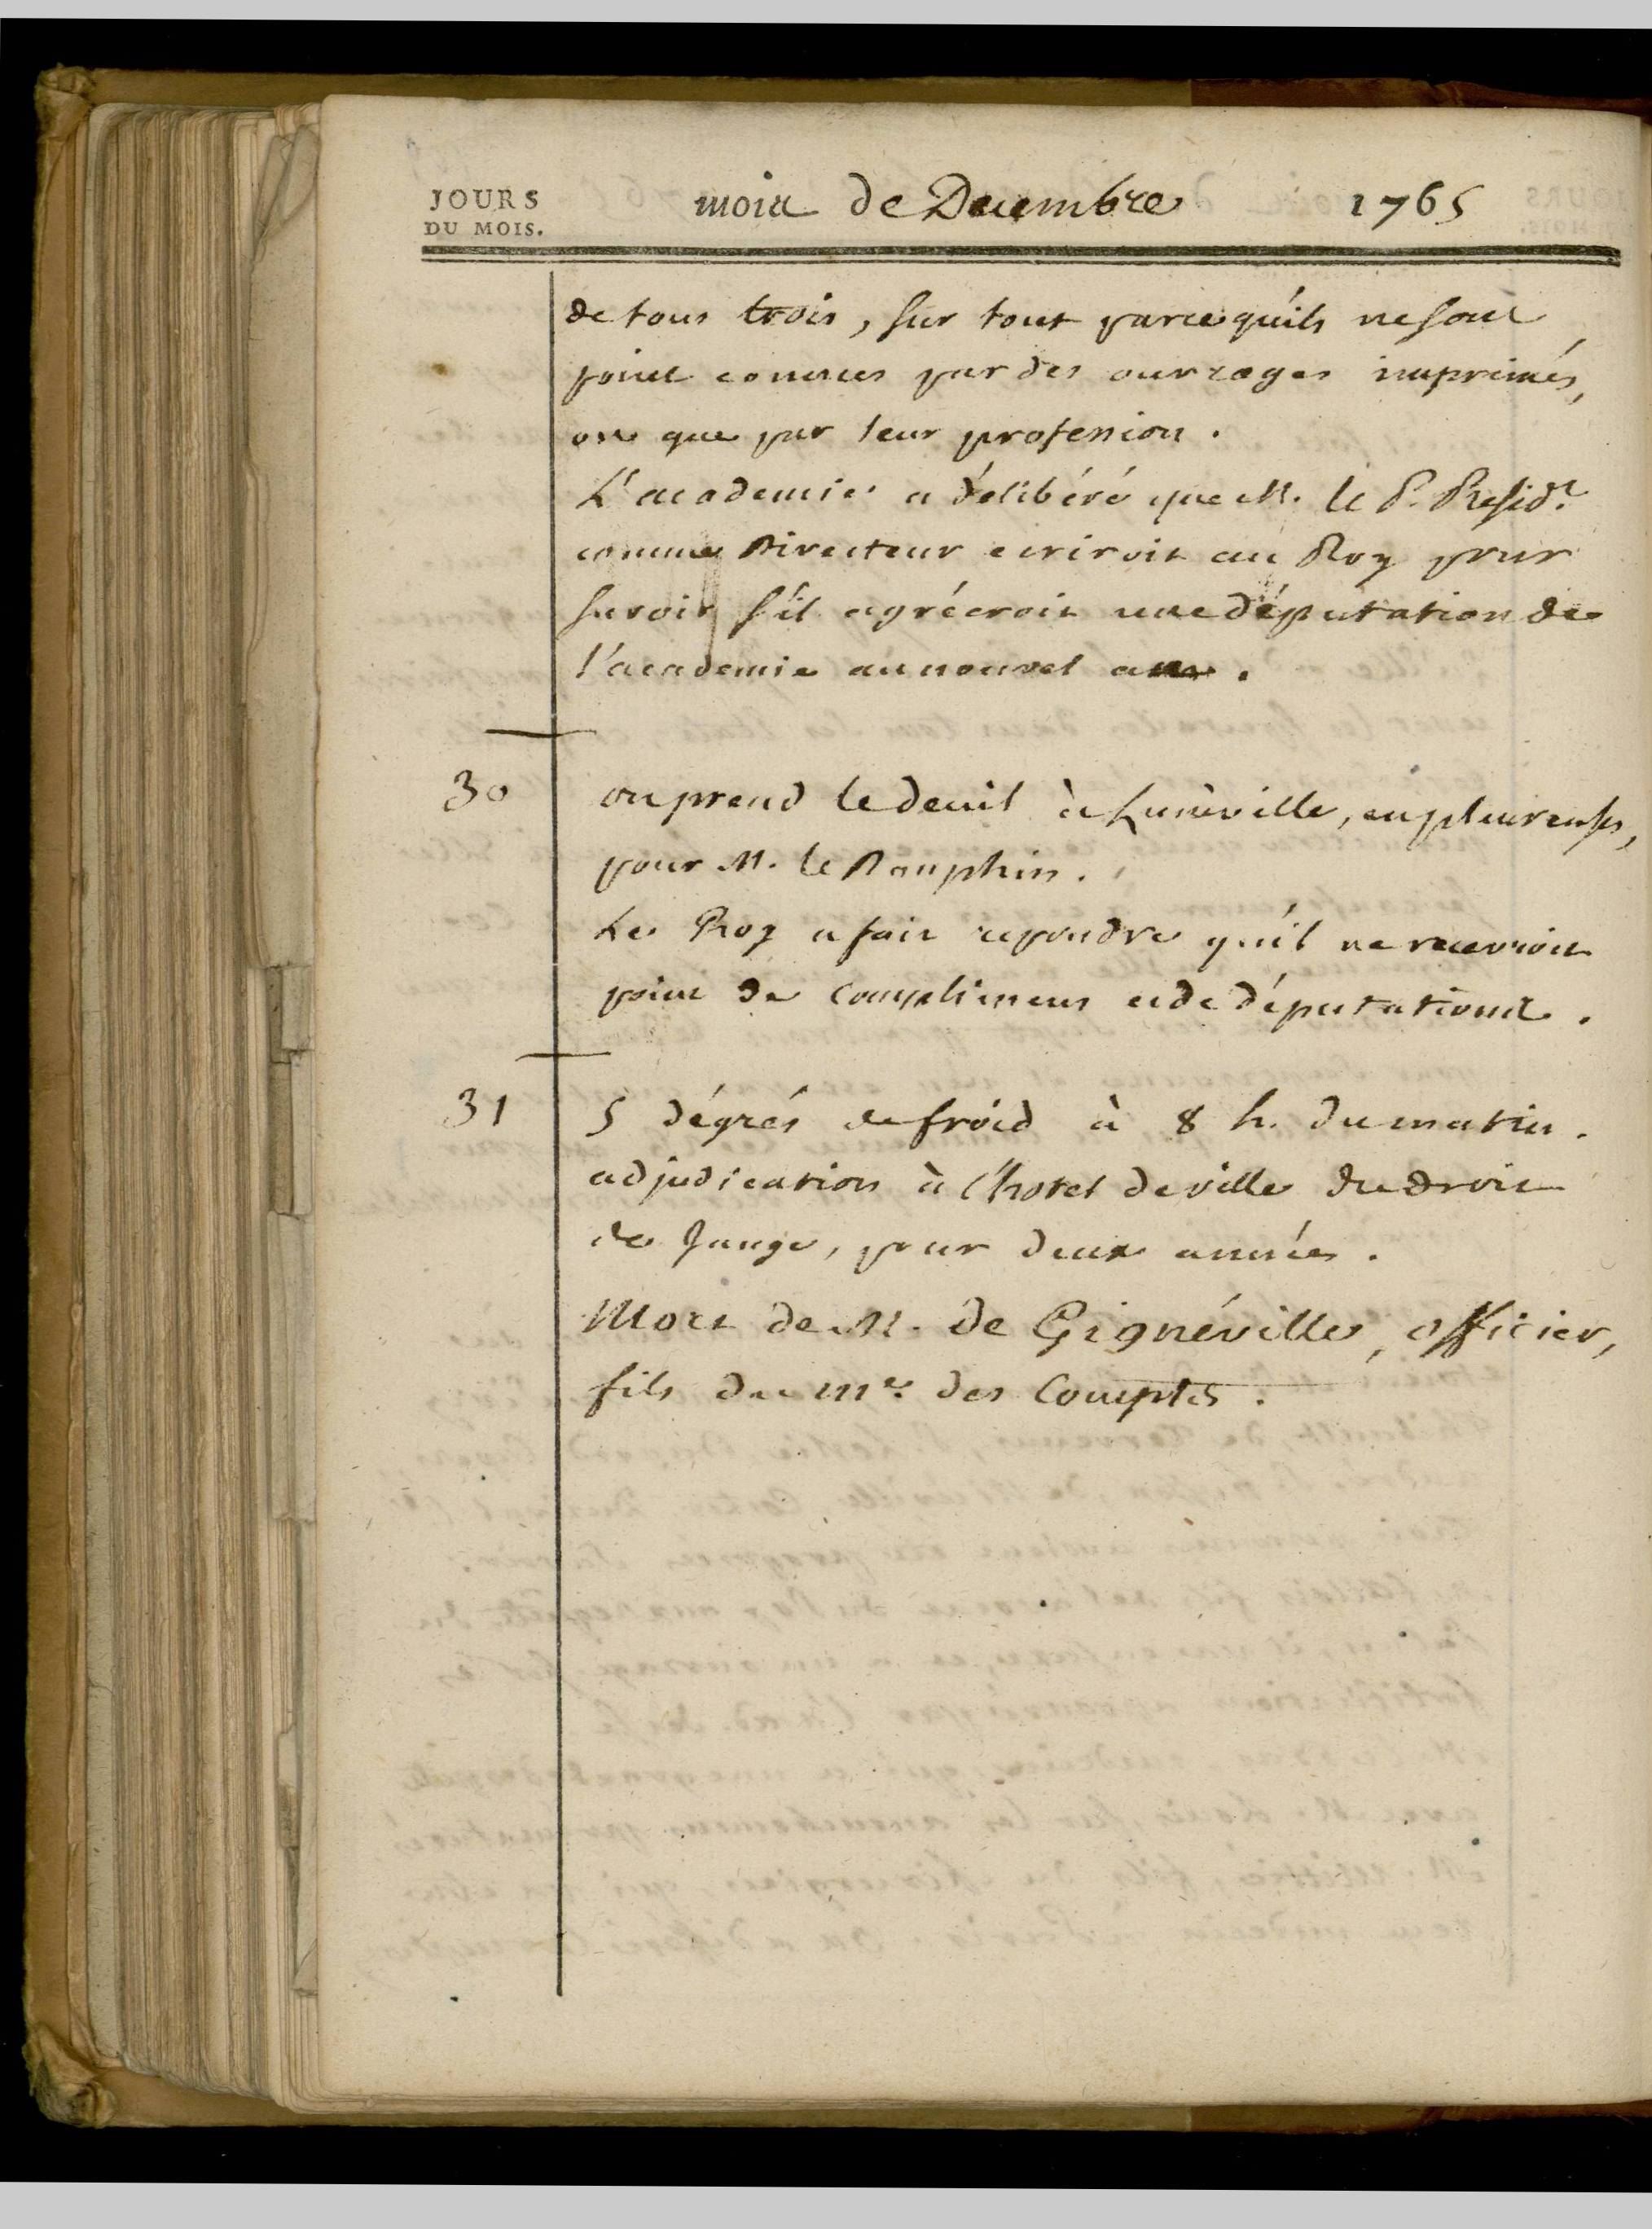 JOURS
DU MOIS.
mois de Decembre 1765
de tous trois, sur tout parce qu'ils ne sont
point connus par des ouvrages imprimés,
que par leur profession.
L'academie a délibéré que M. le P. Presid.t
comme Directeur ecriroit au Roy pour
savoir s'il agréeroit une députation de
l'academie au nouvel an.
30
on prend le deuil à Lunéville, en pleureuses,
pour M. le Dauphin.
Le Roy a fait repondre qu'il ne recevroit
point de complimens et de députations.
31
5 dégrés de froid à 8 h. du matin.
adjudication à l'hotel de ville du droit
de Jauge, pour deux années.
Mort de M. de Gignéville, officier,
fils du me. des Comptes.